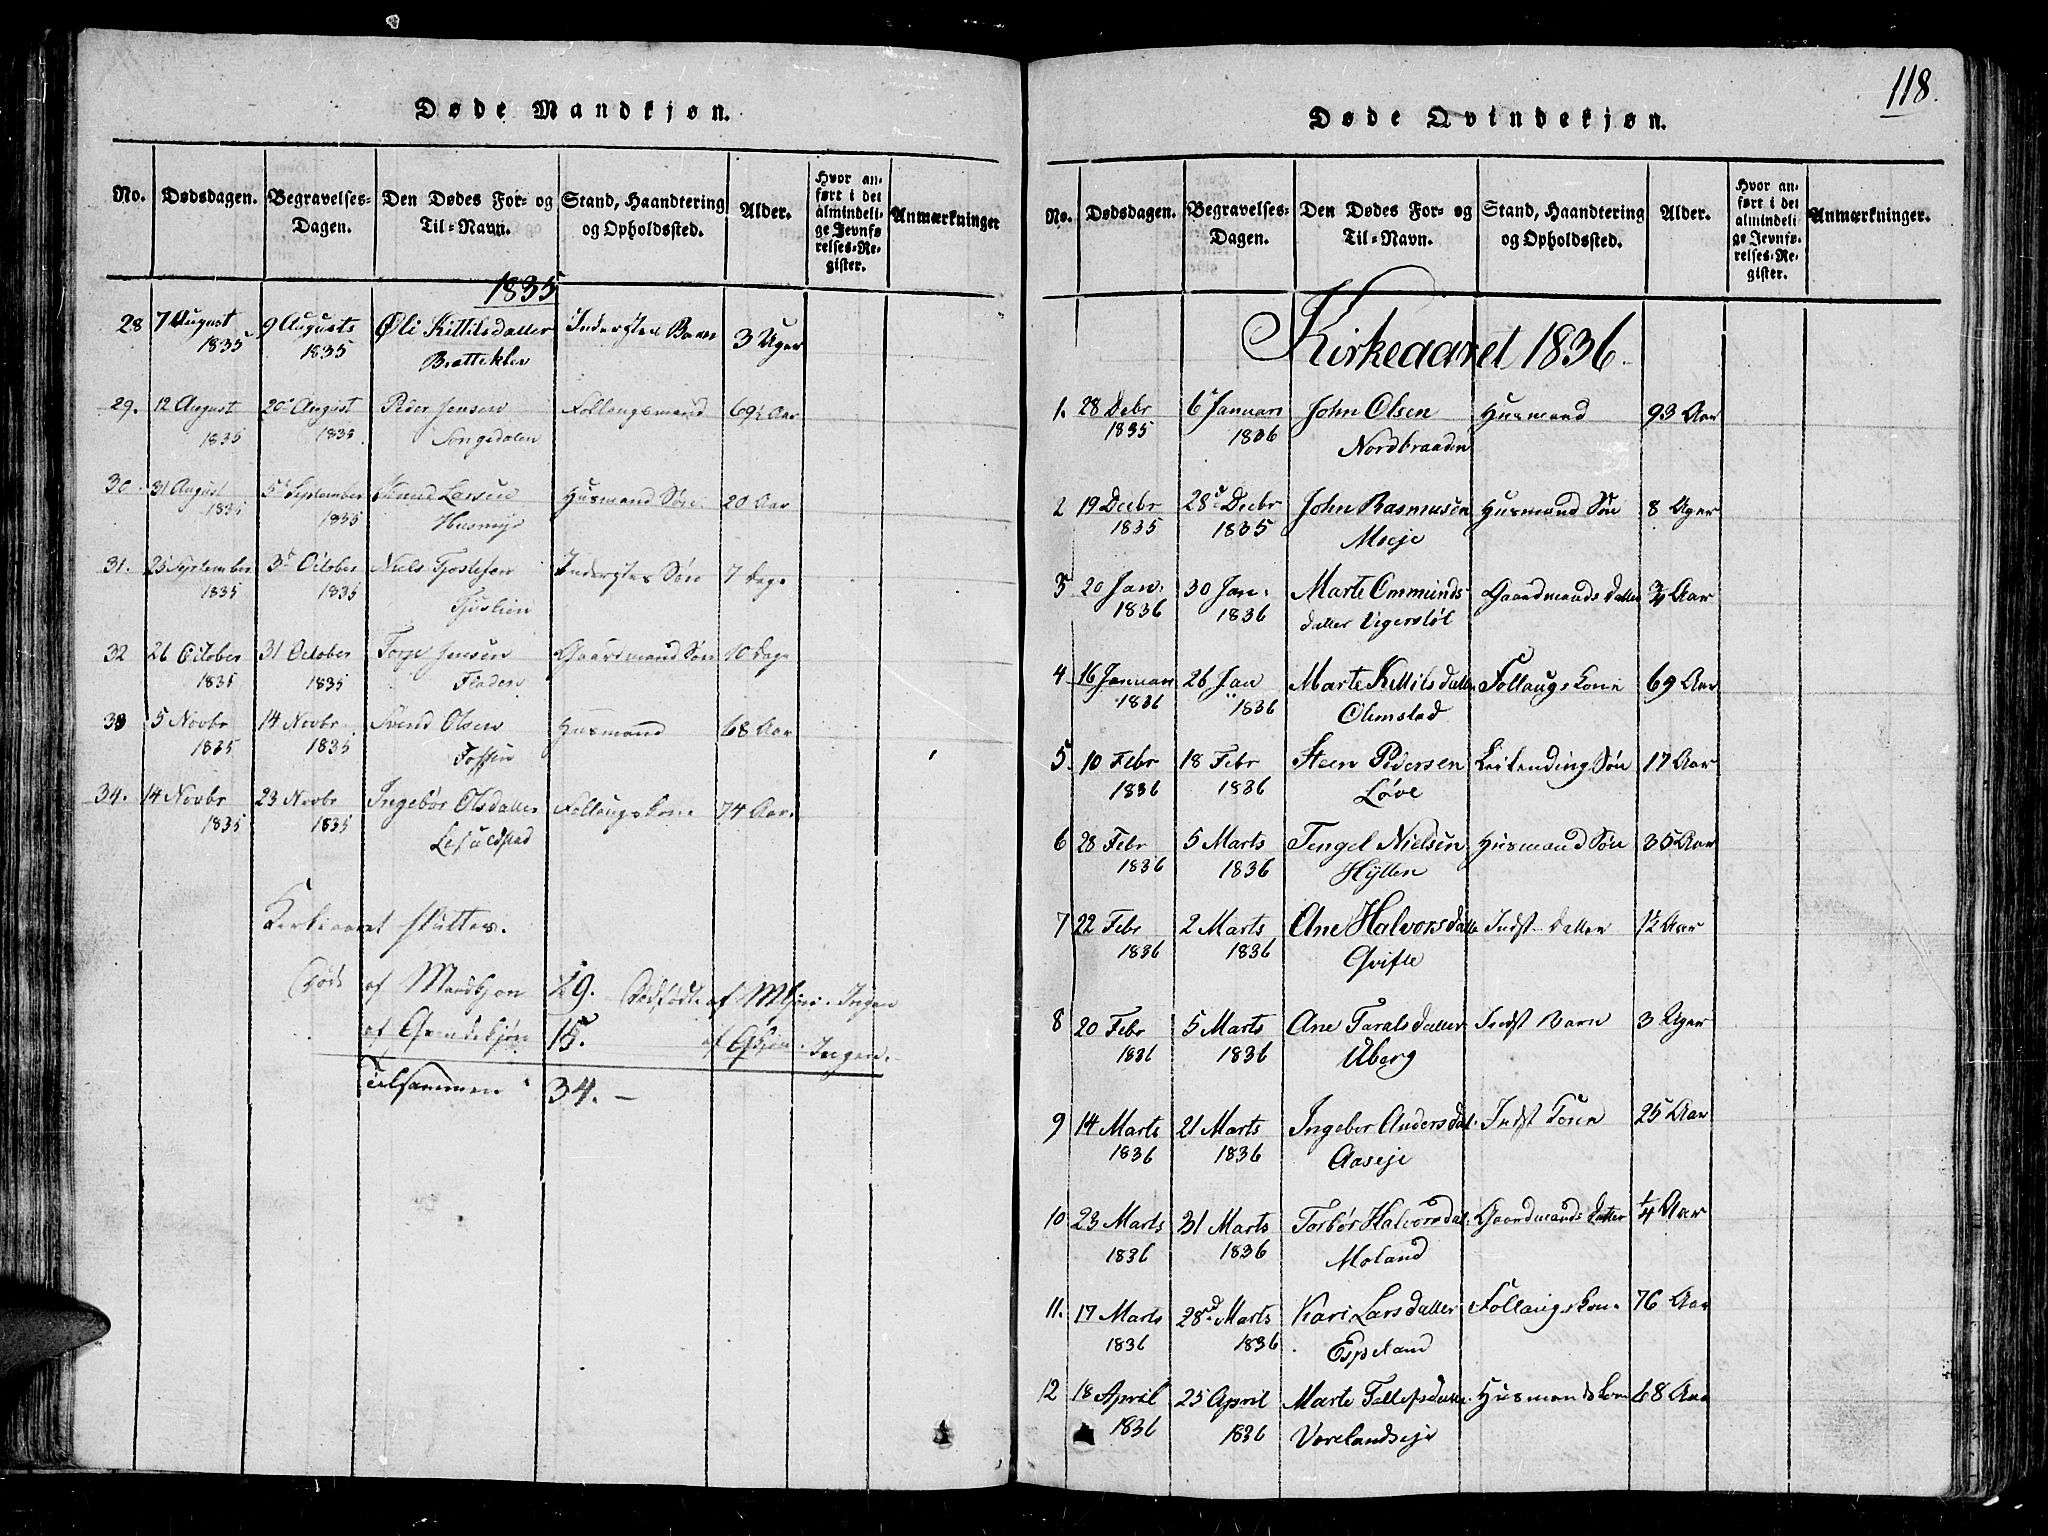 Døde Mandkjøn.
No. Dødsdagen. Begravelses-Dagen. Den Dødes For- og Til-Navn. Stand, Haandtering og Opholdssted. Alder. Hvor anført i det almindelige Jevnførelses-Register. Anmærkninger
1835
28 7 August 9 Augusts Øli Kittilsdatter Inderstes Barn 3 Uger
1835 1835 Bratteklev
29. 12 August 20 August Peder Jensen Follaugsmand 69½ Aar
1835 1835 Songedalen
30. 31 August 5 September Knud Larsen Husmand Søn 20 Aar
1835 1835
31. 23 September 3d October Niels Søn 7 Dage
1835 1835
32 26 October 31 October Jensen Gaardmand Søn 10 Dage
1835 1835 Fladen
33 5 Novbr 14 Novbr Svend Olsen Husmand 68 Aar
1835 1835 Fossen
34. 14 Novbr 23 Novbr Ingebør Olsdatter Follaugskone 74 Aar.
1835 1835
Kirkeaaret sluttes.
Døde af Mandkjøn 19. Dødfødte af Mkjøn. Ingen
af Qvindekjøn 15. af Qkjøn. Ingen.
Tilsammen 34. —
118.
Døde Qvindekjøn.
No. Dødsdagen. Begravelses-Dagen. Den Dødes For- og Til-Navn. Stand, Haandtering og Opholdssted. Alder. Hvor anført i det almindelige Jevnførelses-Register. Anmærkninger.
Kirkeaaret 1836.
1. 28 Debr 6 Januari John Olsen Husmand 93 Aar
1835 1836 Nordbraaden
2 19 Decbr 28 Decbr John Rasmusen Husmand Søn 8 Uger
1835 1835 Moeje
3 20 Jan. 30 Jan. Marte Ommunds Gaardmands Datter ¾ Aar
1836 1836 datter Vigerstøl
4 16 Januari 26 Jan Marte Kittilsdatter Follaugskone 69 Aar
1836 1836 Olimstad
5. 10 Febr 18 Febr Steen Pedersen Søn 17 Aar
1836 1836 Løve
6 28 Febr 5 Marts Tengel Nielsen Husmand Søn 35 Aar
1836 1836 Hÿtten
7 22 Febr 2 Marts Ane Halvorsdatte Indst Datter 1½ Aar
1836 1836 Qvifte
8 20 Febr 5 Marts Ane Taralsdatter Indst Barn 3 Uger
1836 1836 Uberg
9 14 Marts 21 Marts Ingebor Andersdat. Indst 25 Aar
1836 1836 Aaseje
10 23 Marts 31 Marts Torbør Halvorsdat. Gaardmands Datter ¼ Aar
1836 1836 Moland
11. 17 Marts 28d Marts Kari Larsdatter Follaugskone 76 Aar
1836 1836 Espeland
12 18 April 25 April Marte Tallefsdatte. Husmandskone 68 Aar
1836 1836 Vorelandseje